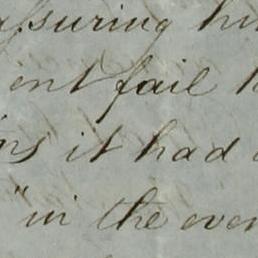 assuring hi
ent fail t
ins it had
"in the even